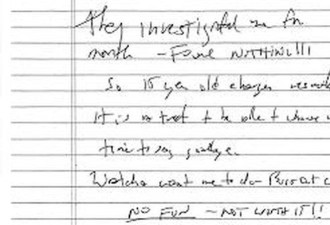 They investigated me for
month - Found NOTHING!!!
So 15 year old charges
It is no treat to be able to choose
time to say goodbye.
Watcha want me to do - Burst at
NO FUN - NOT WORTH IT!!